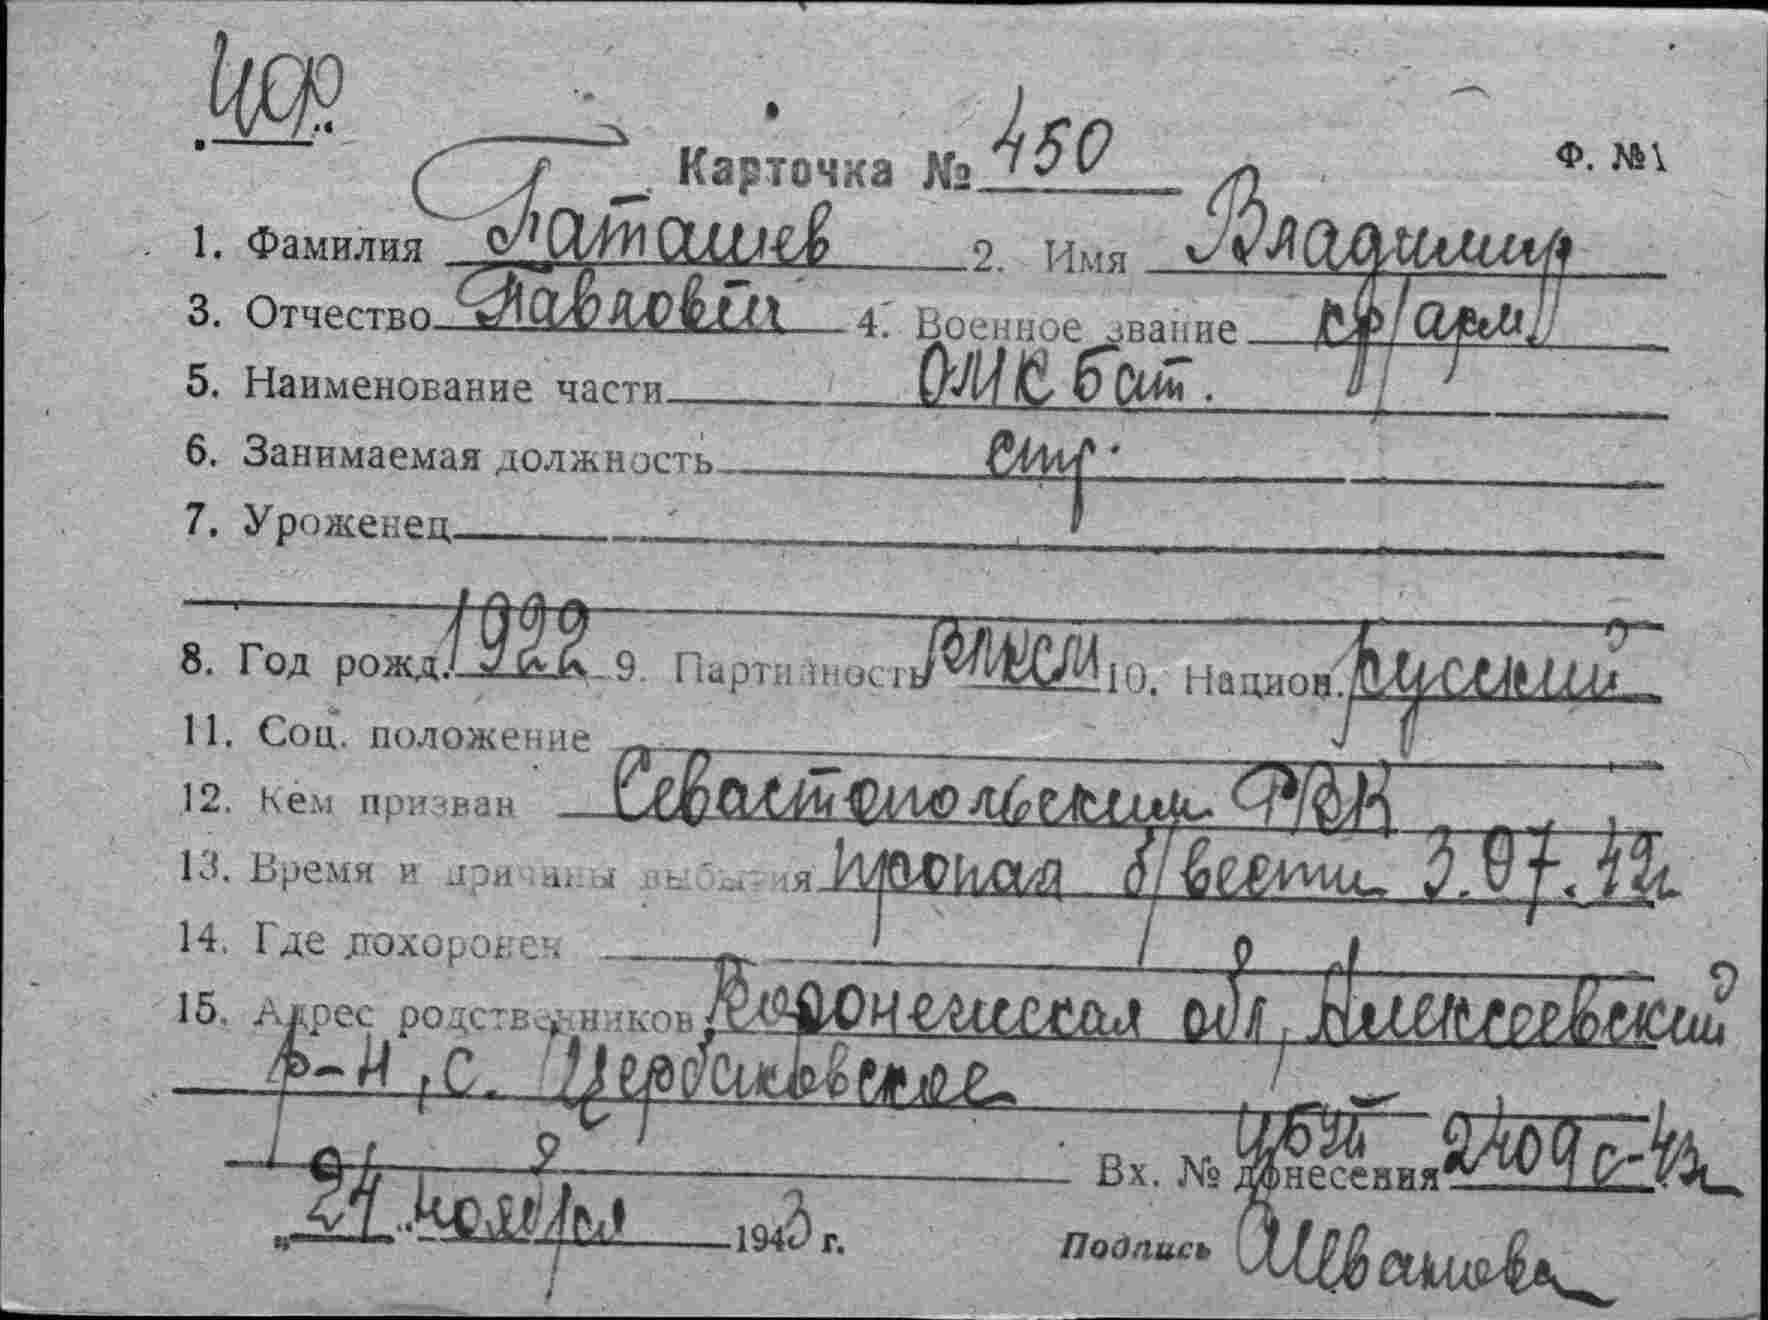 чф.
Карточка № 450 Ф. №1
1. Фамилия Поташев 2. Имя Владимир
3. Отчество Павлович 4. Военное звание кр/арм.
5. Наименование части ОМК бат.
6. Занимаемая должность стр.
7. Уроженец
8. Год рожд. 1922 9. Партийность ВЛКСМ 10. Национ. русский
11. Соц. положение
12. Кем призван Севастопольским РВК
13. Время и причины выбытия пропал б/вести 3.07.42г
14. Где похоронен
15. Адрес родственников Воронежская обл, Алексеевский
р-н, с. Щербаковское
Вх. № донесения 2409с-43г
„24“ ноября 1943 г. Подпись